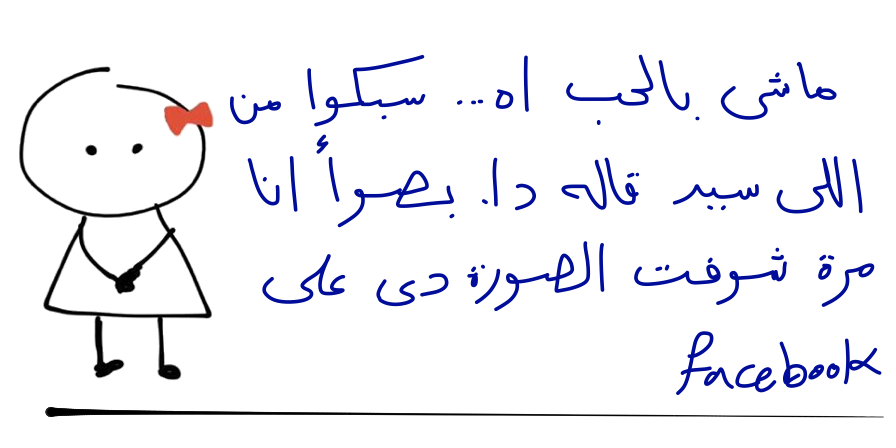 ماشى بالحب اه... سبكوا من
اللى سيد قاله دا. بصوأ انا
مرة شوفت الصورة دى على
facebook